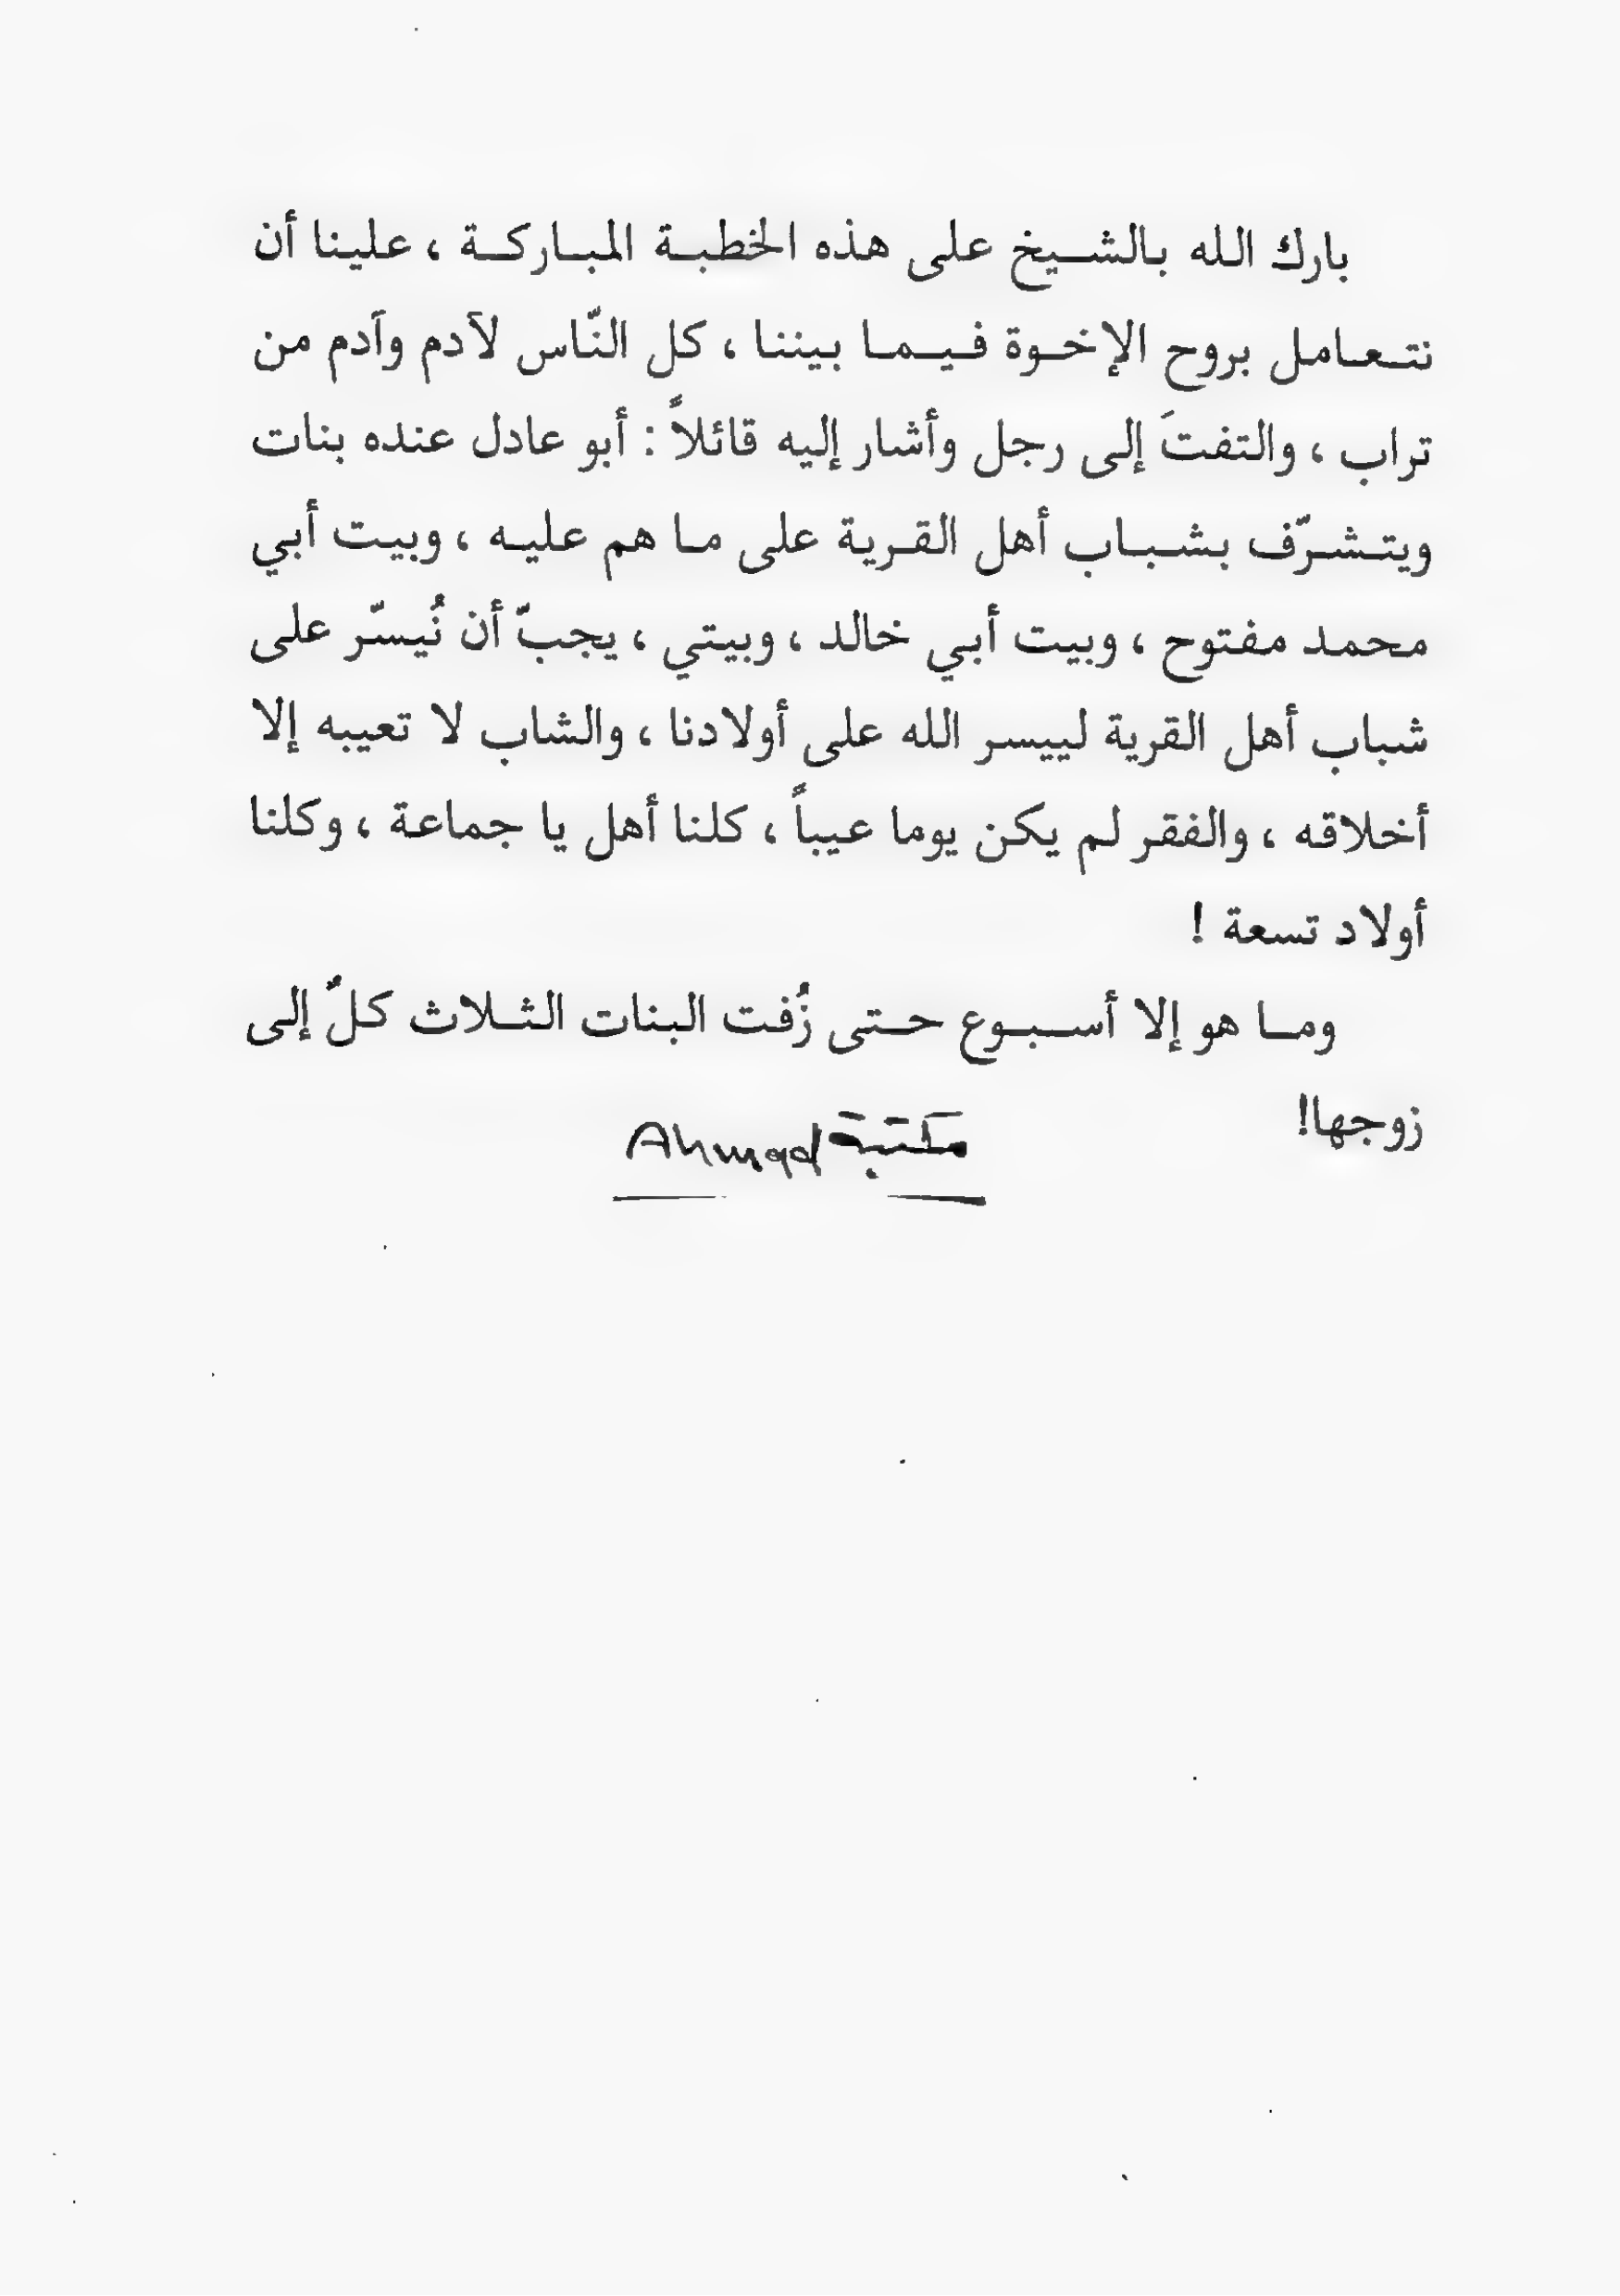 بارك الله بالشيخ على هذه الخطبة المباركة ، علينا أن
نتعامل بروح الإخوة فيما بيننا ، كل النّاس لآدم وآدم من
تراب ، والتفتَ إلى رجل وأشار إليه قائلاً : أبو عادل عنده بنات
ويتشرّف بشباب أهل القرية على ما هم عليه ، وبيت أبي
محمد مفتوح ، وبيت أبي خالد ، وبيتي ، يجبّ أن نُيسّر على
شباب أهل القرية لييسر الله على أولادنا ، والشاب لا تعيبه إلا
أخلاقه ، والفقر لم يكن يوما عيباً ، كلنا أهل يا جماعة ، وكلنا
أولاد تسعة !
وما هو إلا أسبوع حتى زُفت البنات الثلاث كلٌ إلى
زوجها!
مكتبة Ahmad